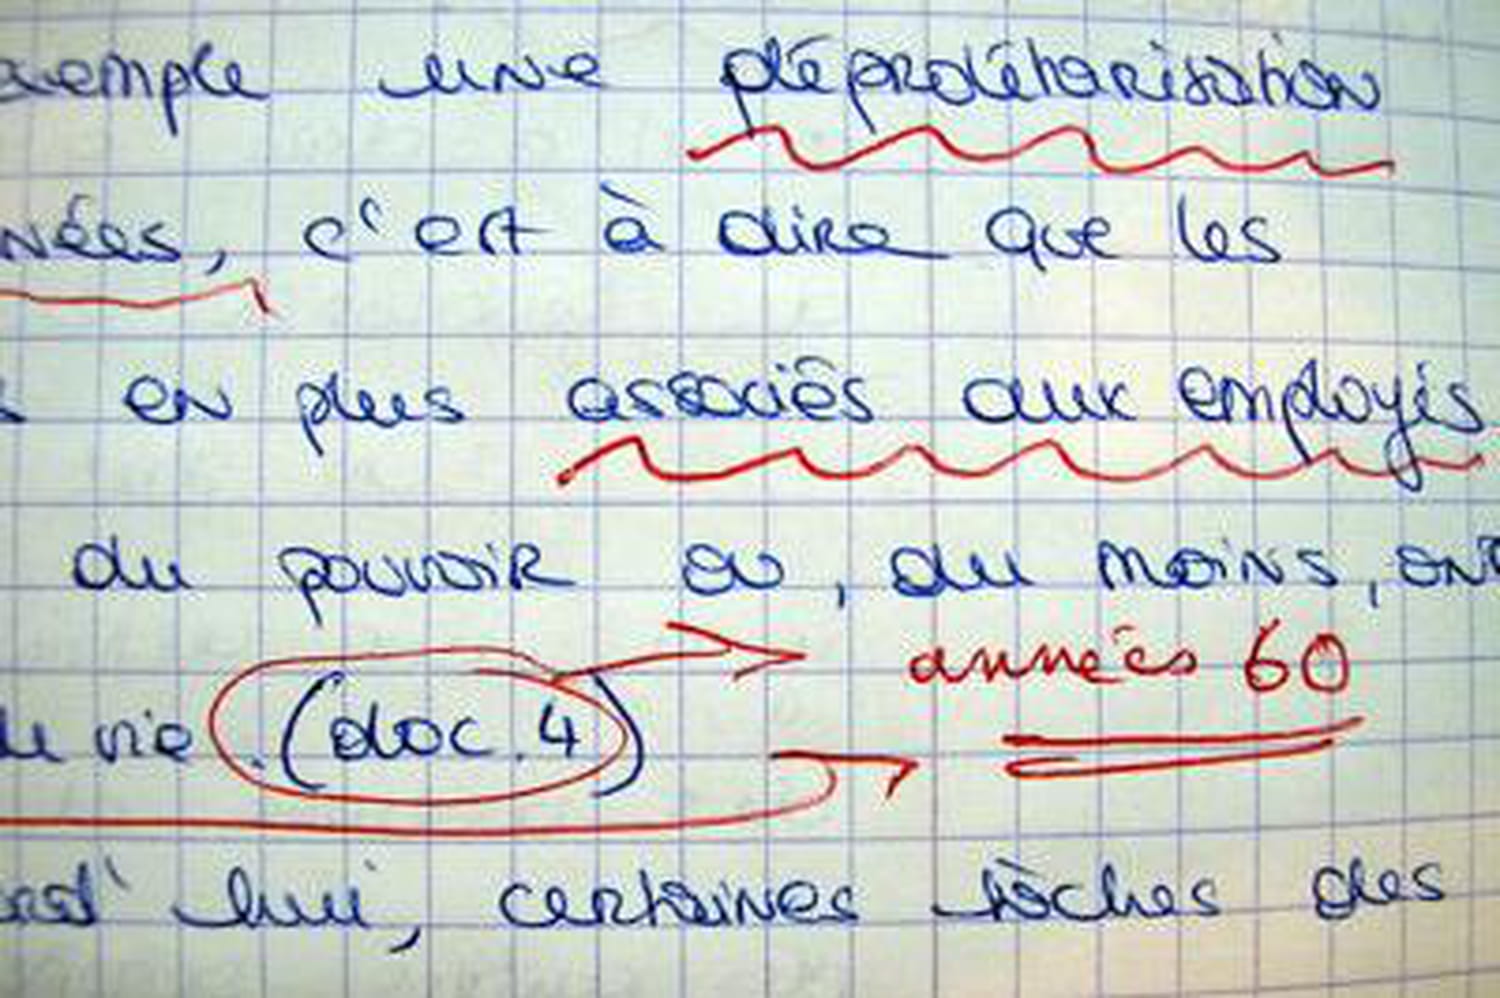 exemple une déprolétarisation
nées, c'est à dire que les
s en plus associés aux employés
du pouvoir ou, du moins, ont
de vie. (doc. 4)
années 60
hui, certaines tâches des